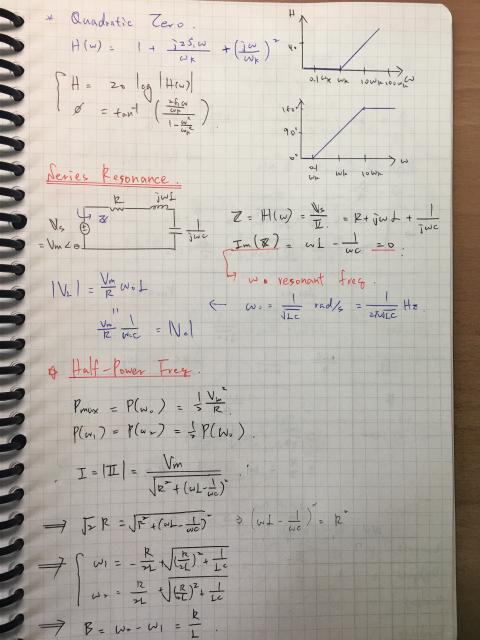 * Quadratic Zero.
H(ω) = 1 + j2ζ₁ω/ωk + (jω/ωk)²
H = 20 log |H(ω)|
ϕ = tan⁻¹ ( (2ζ₁ω/ωk) / (1 - ω²/ωk²) )
H
40
0.1ωk ωk 10ωk 100ωk ω
180°
90°
0°
0.1ωk ωk 10ωk ω
Series Resonance.
R jωL
Vs
= Vm∠θ
Z
1/jωC
Z = H(ω) = Vs/I = R + jωL + 1/jωC
Im(Z) = ωL - 1/ωC = 0
ω₀ resonant freq.
← ω₀ = 1/√LC rad/s = 1/2π√LC Hz
|VL| = Vm/R ω₀L
"
Vm/R 1/ω₀C = |Vc|
* Half-Power Freq.
Pmax = P(ω₀) = 1/2 Vm²/R.
P(ω₁) = P(ω₂) = 1/2 P(ω₀).
I = |I| = Vm / √(R² + (ωL - 1/ωC)²)
⇒ √2 R = √(R² + (ωL - 1/ωC)²) ⇒ (ωL - 1/ωC)² = R²
⇒ ω₁ = - R/2L + √((R/2L)² + 1/LC)
ω₂ = R/2L + √((R/2L)² + 1/LC)
⇒ B = ω₂ - ω₁ = R/L